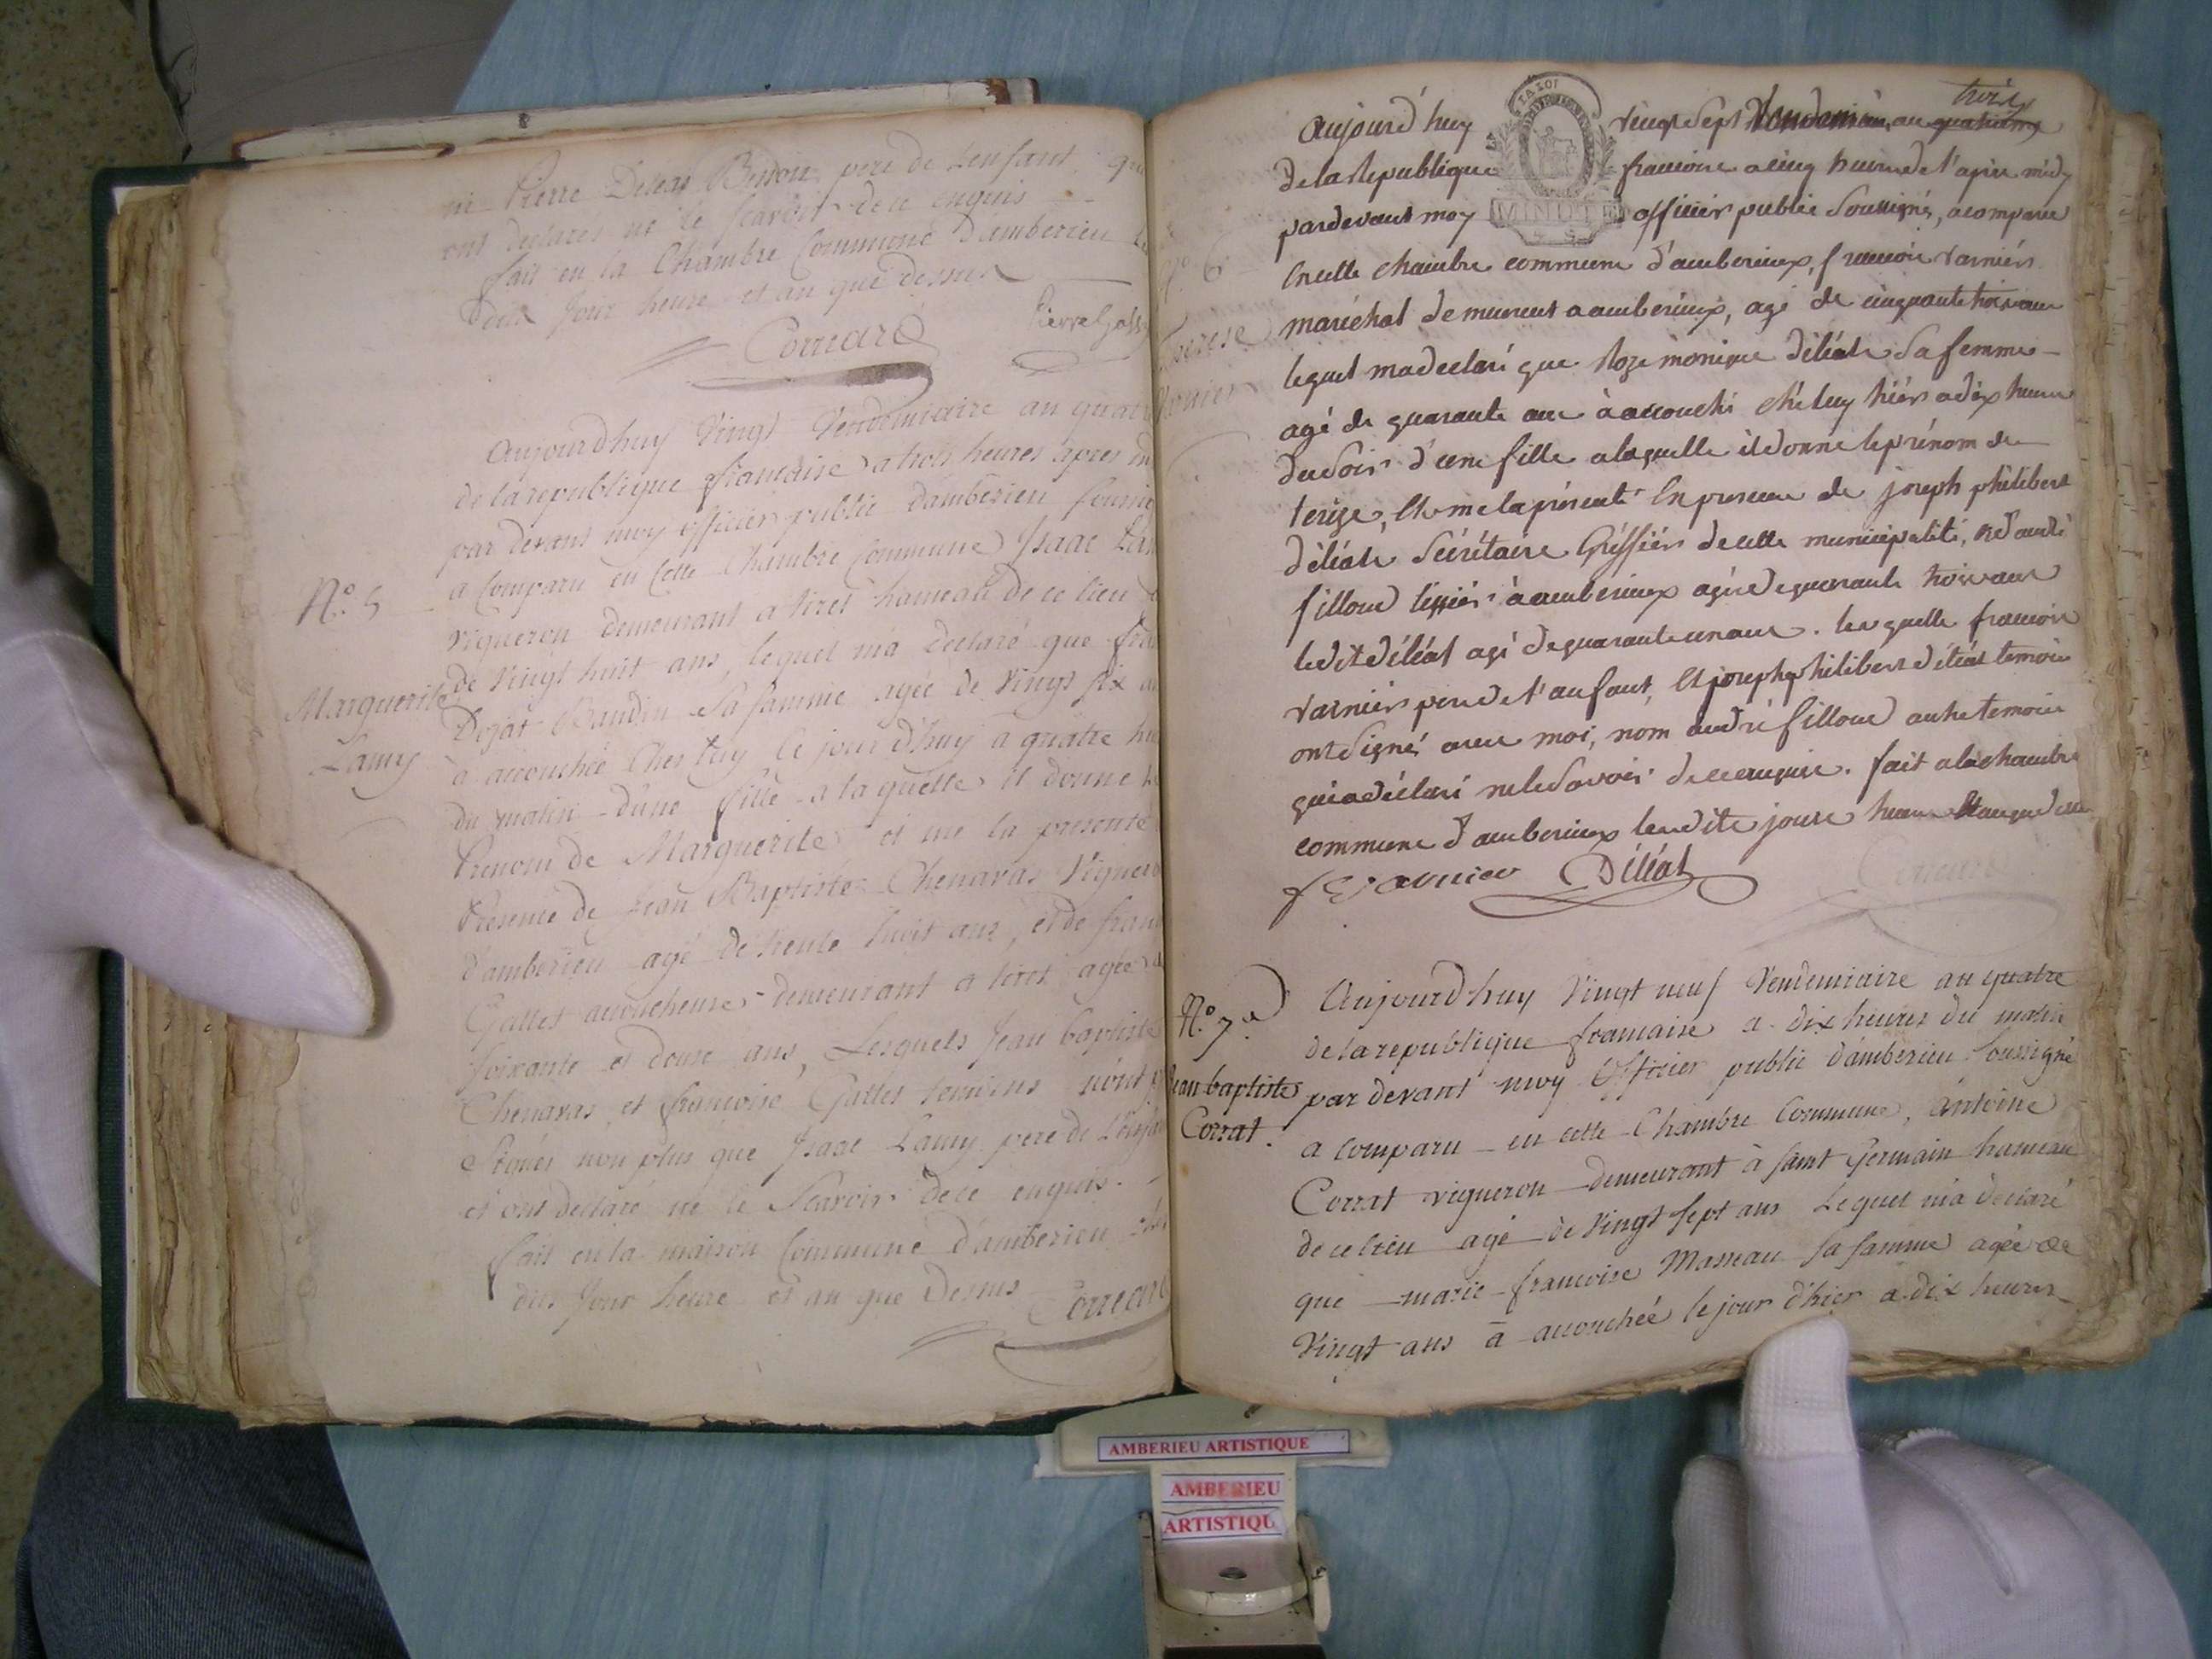 ni Pierre Deleas Bessou pere de Lenfant qui
ont declarés ne le scavoir de ce enquis
fait en la Chambre Commune d'amberieu le
dits Jour heure et an que dessus
Correard Pierre
Aujourdhuy Vingt Vendemiaire an quat
de la republique francaise a trois heures apres m
par devant moy officier public damberieu soussig
a Comparu en Cette Chambre Commune Isaac Lam
N.º 5
vigneron demeurant a tiret hameau de ce lieu
de Vingt huit ans, lequel ma declaré que fran
Marguerite
Lamy
Dejat Baudin Sa famme agée de Vingt six a
à accouchée Ches luy le jour d'huy a quatre he
du matin d'une fille a laquelle il donne le
Prenom de Marguerite et me la presenté
Presence de Jean Baptiste Chenavas Vigner
d'amberieu agé de trente huit ans, et de fran
Gallet accoucheuse demeurant a tiret agée d
soixante et douze ans, Lesquels Jean baptiste
Chenavas et francoise Gallet temoins n'ont p
Signés non plus que Isaac Lamy pere de L'enfa
et ont declaré ne le Scavoir de ce enquis.
fait en la maison Commune d'amberieu les
dits Jour heure et an que Dessus Correard
aujourd'huy vingt Sept Vendemiaire, an quatrieme trois
de la Republique francoise a cinq heures de l'apres midy
pardevant moy MINUTE officier public Soussigné, a comparu
N.º 6
En cette chambre commune d'amberieux, francois varnier
Terese
Varnier
maréchal demeurant a amberieux, agé de cinquante trois ans
lequel ma declaré que Roze monique déléat Sa femme
agé de quarante ans à accouché ché luy hiér a dix heures
du Soir d'une fille a laquelle il donne le prénom de
terése, Et me la présenté En presence de joseph philibert
déléat Sécrétaire Gréffiér de cette municipalité, et d'andré
filloud tissiér à amberieux agé de quarante trois ans
le dit déléat agé de quarante un ans. lesquelle francois
varniér pere de l'anfant, Et joseph philibert déléat temoin
ont Signé avec moi, nom andré filloud autre temoin
qui a déclaré ne le Savoir de ce enquis. fait a la chambre
commune d'amberieux lesdits jours heure Et an que dessus
Déléat Correard
N.º 7.e
Aujourdhuy Vingt neuf Vendemiaire an quatre
de la republique francaise a dix heures du matin
Jean baptiste
Corrat.
par devant moy Officier public d'amberieu Soussigné
a comparu en cette Chambre Commune, antoine
Corrat vigneron demeurant à Saint Germain hameau
de ce lieu agé de Vingt sept ans Lequel m'a declaré
que marie francoise Masneau sa famme agée de
Vingt ans à accouchée le jour d'hier a dix heures
AMBERIEU ARTISTIQUE
AMBERIEU
ARTISTIQU